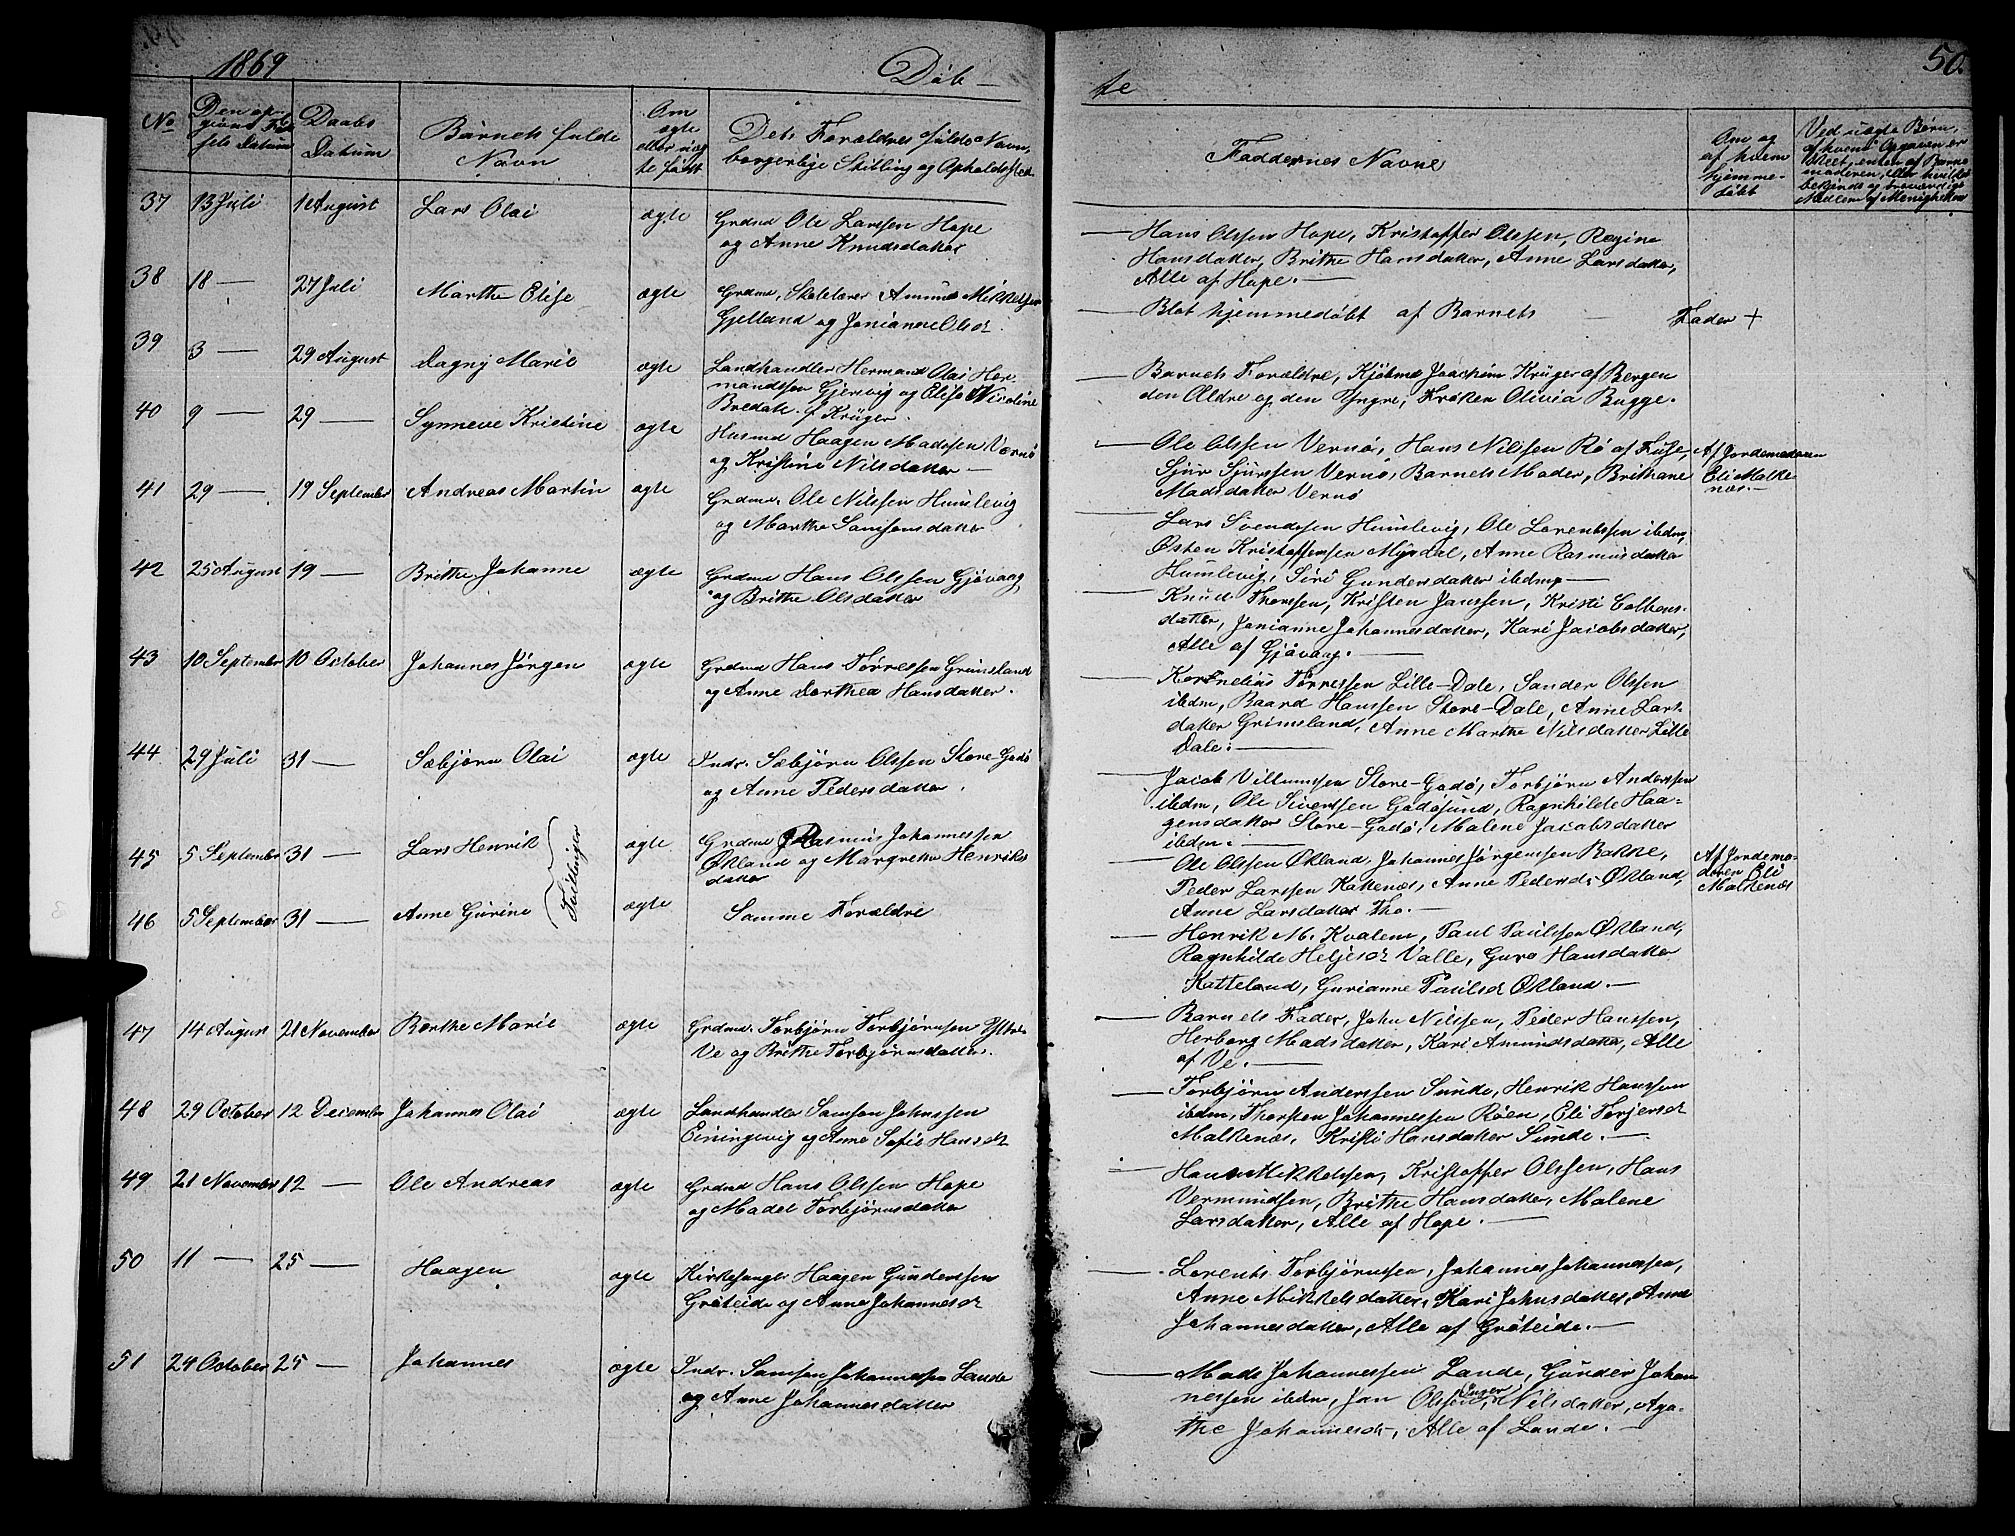 1869
Døb-
te
50.
No
Daabs
Datum
Barnets fulde
Navn
Om
ægte
eller uæg
te født
Dets Forældres fulde Navn,
borgerlige Stilling og Opholdssted
Faddernes Navne
Om og
af hvem
hjemme-
døbt
Ved uægte Børn,
37 13 Juli 1 August Lars Olai ægte Grdmd Ole Larssen Hope
og Anne Knudsdatter
Hans Olssen Hope, Kristoffer Olssen, Regine
Hansdatter, Brithe Hansdatter, Anne Larsdatter,
Alle af Hope.
38 18 — 27 Juli Marthe Elise ægte Grdmd, Skolelærer Amund Mikkelsen
Gjelland og Janianne Olsdr.
Blot hjemmedøbt af Barnets Fader +
39 3 — 29 August Dagny Marie ægte Landhandler Hermand Olai Her-
mandssen Gjervig og Elise Nicoline
Bredah. f. Krüger.
Barnets Forældre, Kjøbmd Joachim Krüger af Bergen
den Ældre og den Yngre, Frøken Olivia Bugge.
40 9 — 29 — Synneve Kristine ægte Husmd Haagen Madssen Vernø
og Kristine Nilsdatter
Ole Olssen Vernø, Hans Nilssen Rø af Fuse,
Sjur Sjurssen Vernø, Barnets Moder, Brithane
Madsdatter Vernø
Af Jordemoderen
Eli Malke-
næs.
41 29 — 19 September Andreas Martin ægte Grdmd. Ole Nilssen Humlevig
og Marthe Samsonsdatter
Lars Svendssen Humlevig, Ole Lorentssen ibedm,
Østen Kristoffersen Myrdal, Anne Rasmusdatter
Humlevig, Siri Gundersdatter ibedm
42 25 August 19 — Brithe Johanne ægte Grdmd Hans Olssen Gjøvaag
og Brithe Olsdatter
Knud Thorssen, Kristen Janssen, Kristi Colbens-
datter, Janianne Johannesdatter, Kari Jacobsdatter,
Alle af Gjøvaag.
43 10 September 10 October Johannes Jørgen ægte Grdmd Hans Tørressen Grimsland
og Anne Dorthea Hansdatter.
Kornelius Tørressen Lille-Dale, Sander Olssen
ibedm, Baard Hanssen Store-Dale, Anne Lars-
datter Grimsland, Anne Marthe Nilsdatter Lille
Dale.
44 29 Juli 31 — Sæbjørn Olai ægte Indr. Sæbjørn Olssen Store-Godø
og Anne Pedersdatter.
Jacob Villumssen Store-Godø, Torbjørn Anderssen
ibedm, Ole Sivertssen Godøsund, Ragnhilde Haa-
gensdatter Store-Godø, Malene Jacobsdatter
ibedm.
45 5 September 31 — Lars Henrik Tvillinger ægte Grdmd Rasmus Johannessen
Økland og Margrethe Henriks
datter
Ole Olssen Økland, Johannes Jørgenssen Bakke,
Peder Larssen Kattenæs, Anne Pedersd. Økland,
Anne Larsdatter Tho.
Af Jordemo-
deren Eli
Malkenæs
46 5 September 31 — Anne Gurine ægte Samme Forældre
Henrik M. Kvalem, Paul Paulssen Økland,
Ragnhilde Heljesdr Valle, Guro Hansdatter
Katteland, Gurianne Paulsdr Økland.
47 14 August 21 November Berthe Marie ægte Grdmd. Torbjørn Torbjørnssen Yttre
Ve og Brithe Torbjørnsdatter.
Barnets Fader, John Nilssen, Peder Hanssen,
Herborg Madsdatter, Kari Amundsdatter, Alle
af Ve.
48 29 October 12 December Johannes Olai ægte Landhandler Samson Johnssen
Einingevig og Anne Sofie Hansdr
Torbjørn Anderssen Sunde, Henrik Hanssen
ibedm, Thorsten Johannessen Røen, Eli Torjersdr
Malkenæs, Kristi Hansdatter Sunde.
49 21 November 12 — Ole Andreas ægte Grdmd Hans Olssen Hope
og Madel Torbjørnsdatter
Hans Mikkelssen, Kristoffer Olssen, Hans
Vermundsen, Brithe Hansdatter, Malene
Larsdatter, Alle af Hope.
50 11 — 25 — Haagen ægte Kirkesanger Haagen Gunderssen
Grøteide og Anne Johannesdr
Lorents Torbjørnssen, Johannes Johannessen,
Anne Mikkelsdatter, Kari Johnsdatter, Anne
Johannesdatter, Alle af Grøteide.
51 24 October 25 — Johannes ægte Indr. Samson Johannessen Lande
og Anne Johannesdatter
Mads Johannessen Lande, Gunder Johan
nessen ibedm, Jan Olssen, Inger Nilsdatter, Aga-
the Johannesdr, Alle af Lande.